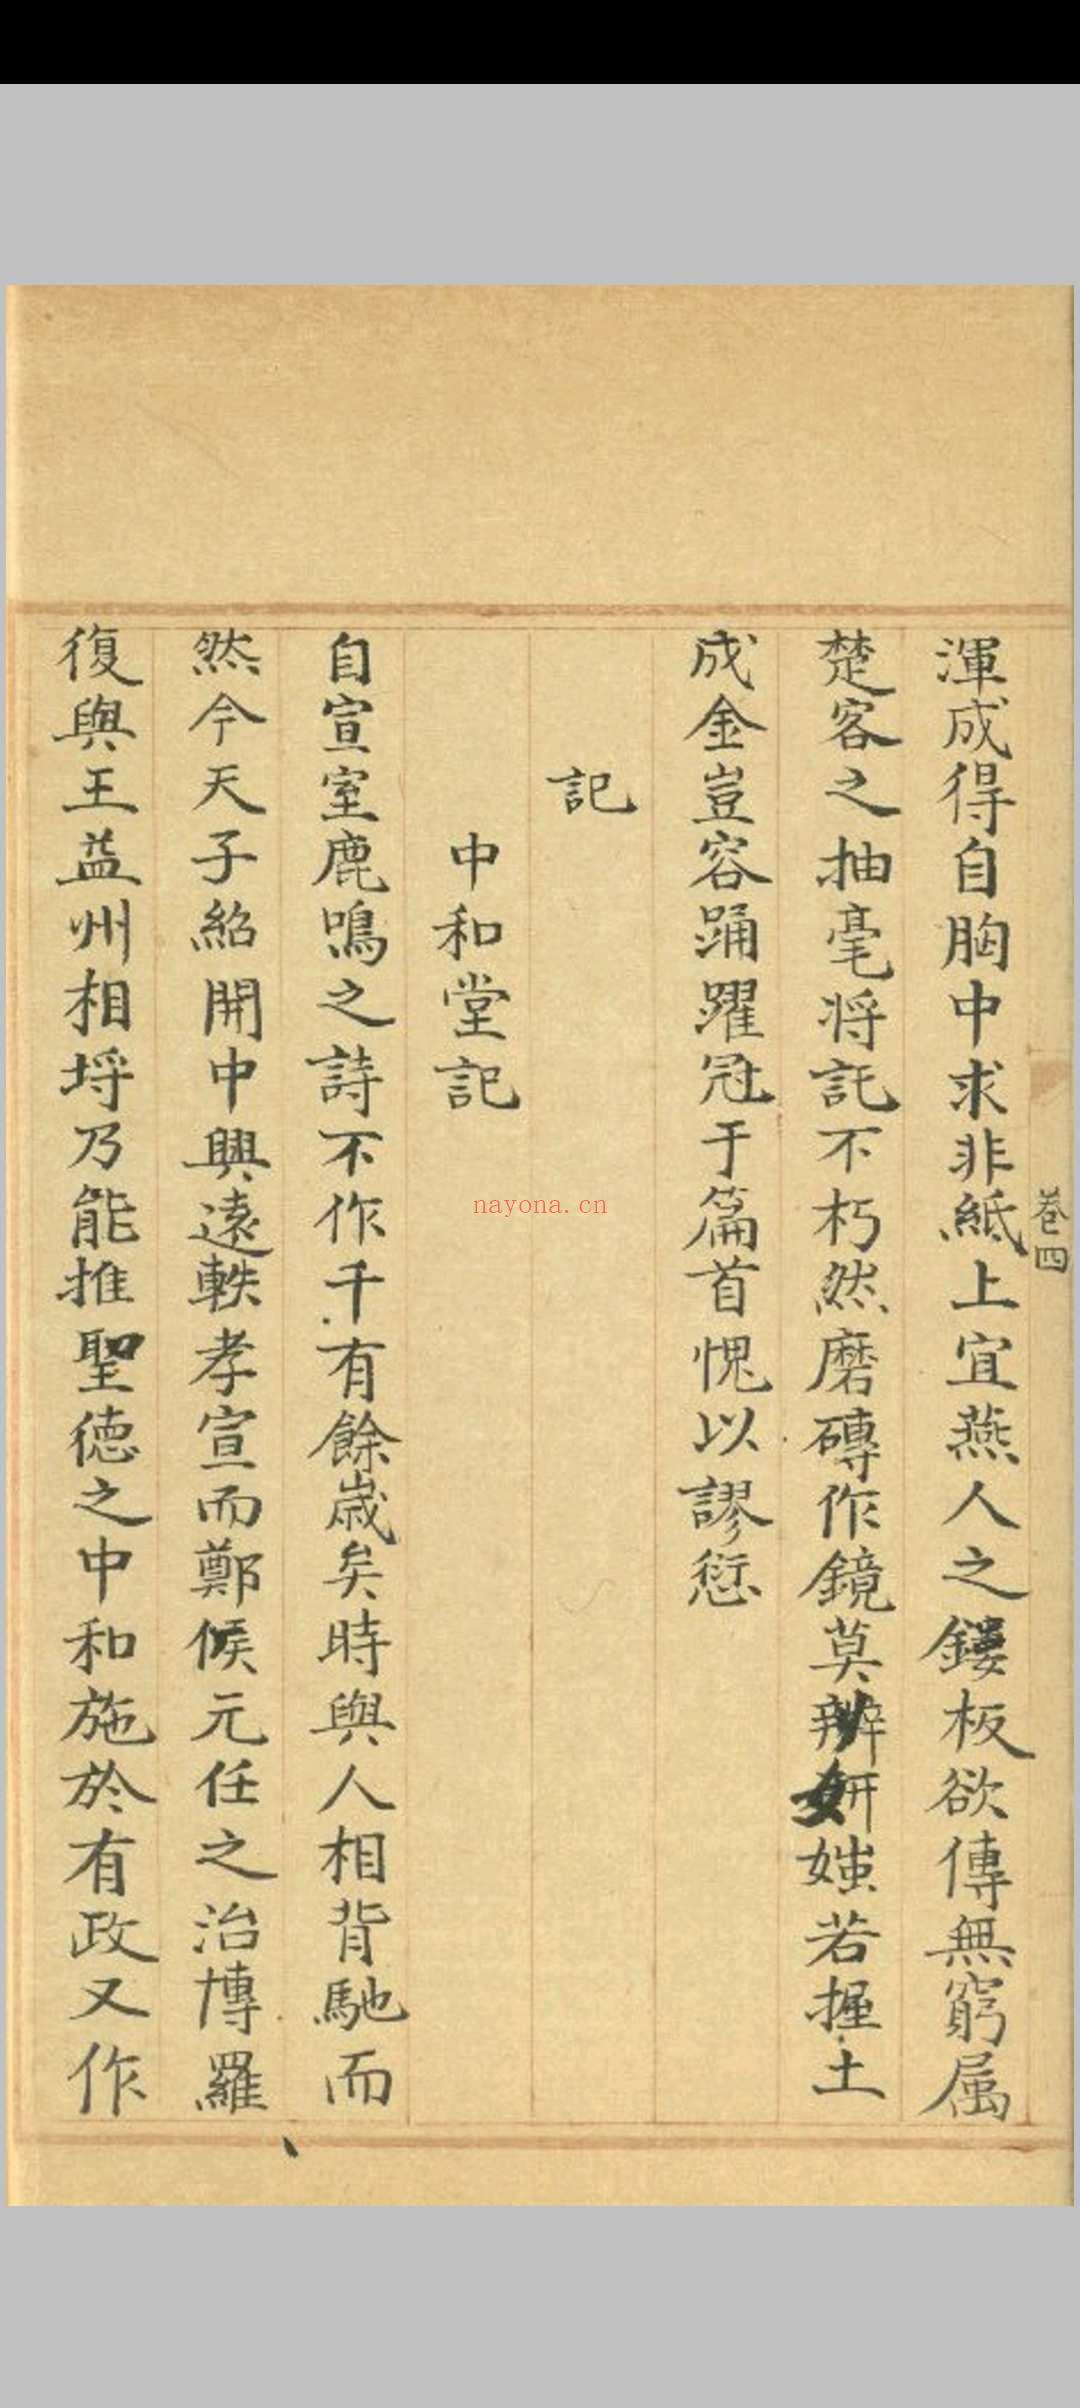 卷四
渾成得自胸中求非紙上宜燕人之鏤板欲傳無窮属
楚客之抽毫将託不朽然磨磚作鏡莫辨妍媸若握土
成金豈容踊躍冠于篇首愧以謬愆
記
中和堂記
自宣室鹿鳴之詩不作千有餘歳矣時與人相背馳而
然今天子紹開中興遠軼孝宣而鄭候元任之治博羅
復與王益州相埒乃能推聖徳之中和施於有政又作
nayona.cn